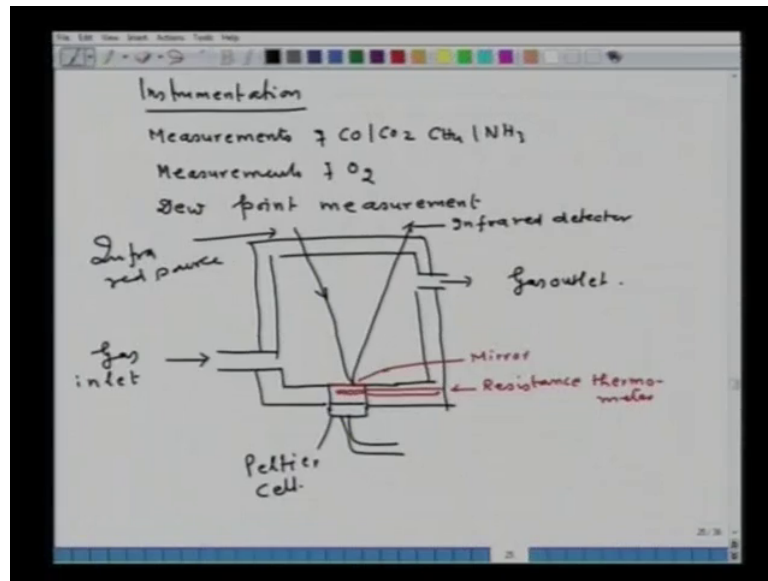 File Edit View Insert Actions Tools Help
Instrumentation
Measurements of CO/CO2 CH4/NH3
Measurements of O2
Dew point measurement
Infrared detector
Infra
red source
Gas outlet.
Gas
inlet
Mirror
Resistance thermo-
meter
Peltier
Cell.
25/36
25